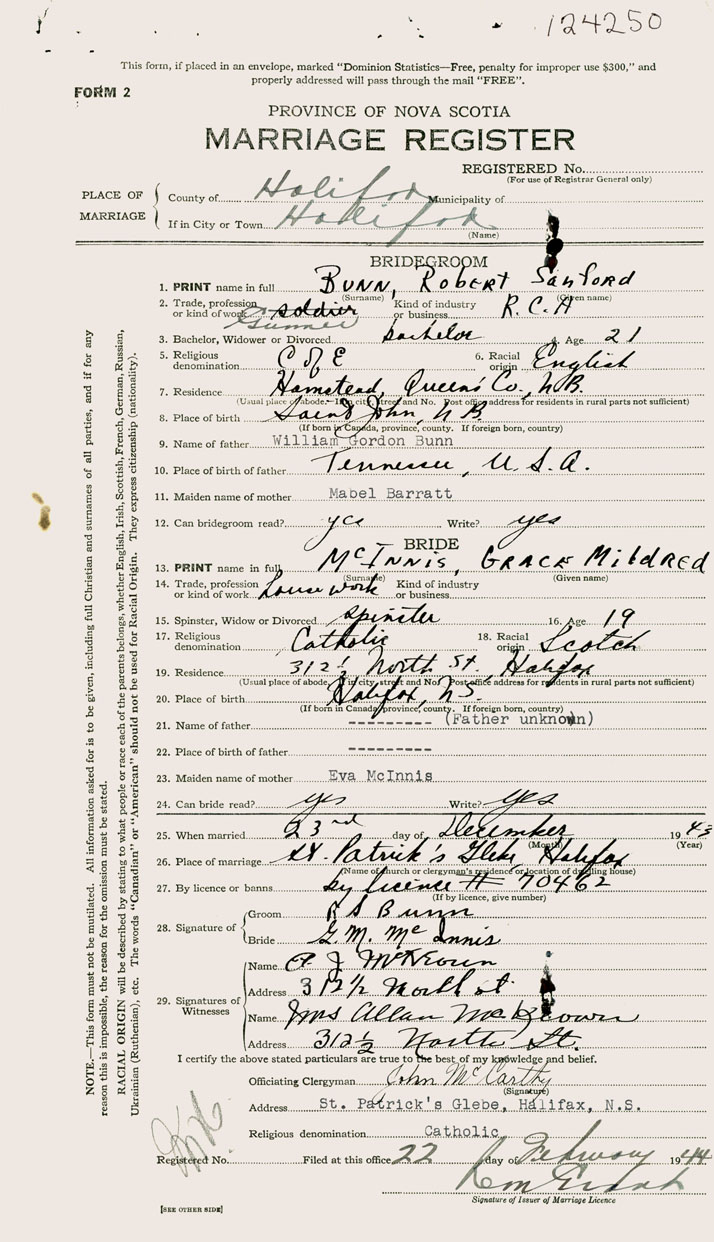 124250
This form, if placed in an envelope, marked "Dominion Statistics—Free, penalty for improper use $300," and
properly addressed will pass through the mail "FREE".
FORM 2
PROVINCE OF NOVA SCOTIA
MARRIAGE REGISTER
REGISTERED No.
(For use of Registrar General only)
PLACE OF MARRIAGE
County of Halifax Municipality of
If in City or Town Halifax
(Name)
BRIDEGROOM
1. PRINT name in full BUNN, ROBERT SANFORD
(Surname) (Given name)
2. Trade, profession or kind of work soldier Gunner Kind of industry or business R.C.A
3. Bachelor, Widower or Divorced bachelor 4. Age 21
5. Religious denomination C of E 6. Racial origin English
7. Residence Hamstead, Queens Co., N.B.
(Usual place of abode.—If in city, street and No. Post office address for residents in rural parts not sufficient)
8. Place of birth Saint John, N B
(If born in Canada, province, county. If foreign born, country)
9. Name of father William Gordon Bunn
10. Place of birth of father Tennessee, U.S.A.
11. Maiden name of mother Mabel Barratt
12. Can bridegroom read? yes Write? yes
BRIDE
13. PRINT name in full McINNIS, GRACE MILDRED
(Surname) (Given name)
14. Trade, profession or kind of work house work Kind of industry or business
15. Spinster, Widow or Divorced spinster 16. Age 19
17. Religious denomination Catholic 18. Racial origin Scotch
19. Residence 312½ North St. Halifax
(Usual place of abode, if in city, street and No. Post office address for residents in rural parts not sufficient)
20. Place of birth Halifax, N.S.
(If born in Canada, province, county. If foreign born, country)
21. Name of father --------- (Father unknown)
22. Place of birth of father ---------
23. Maiden name of mother Eva McInnis
24. Can bride read? yes Write? yes
25. When married 23rd day of December 1943
(Month) (Year)
26. Place of marriage St. Patrick's Glebe, Halifax
(Name of church or clergyman's residence or location of dwelling house)
27. By licence or banns by licence # 70462
(If by licence, give number)
28. Signature of
Groom R S Bunn
Bride G. M. McInnis
29. Signatures of Witnesses
Name A J McKeown
Address 312½ North st
Name Mrs Allan McKeown
Address 312½ North St.
I certify the above stated particulars are true to the best of my knowledge and belief.
Officiating Clergyman John McCarthy
(Signature)
Address St. Patrick's Glebe, Halifax, N.S.
Religious denomination Catholic
Registered No. Filed at this office 22 day of February 1944
Signature of Issuer of Marriage Licence
[SEE OTHER SIDE]
NOTE.—This form must not be mutilated. All information asked for is to be given, including full Christian and surnames of all parties, and if for any
reason this is impossible, the reason for the omission must be stated.
RACIAL ORIGIN will be described by stating to what people or race each of the parents belongs, whether English, Irish, Scottish, French, German, Russian,
Ukrainian (Ruthenian), etc. The words "Canadian" or "American" should not be used for Racial Origin. They express citizenship (nationality).